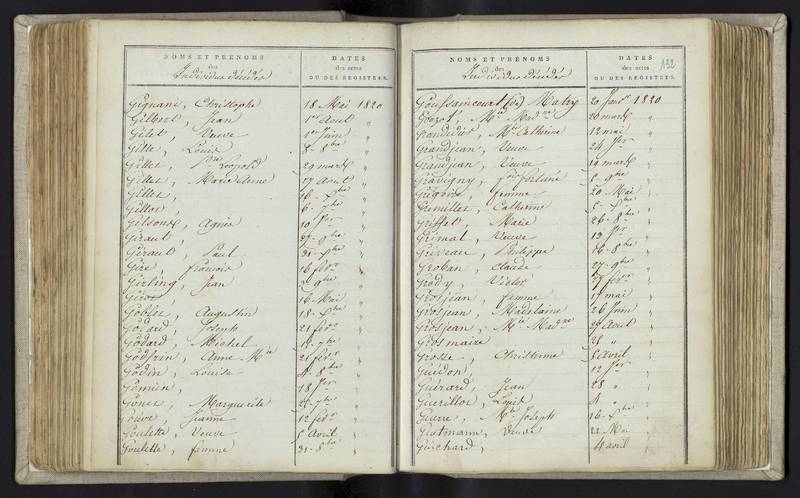 NOMS ET PRÉNOMS
des
Individus décédés
DATES
des actes
OU DES REGISTRES.
Gignani, Christophe 18 Mai 1820
Gilbert, Jean 1er Avril "
Gilet, Veuve 1er Juin "
Gille, Louis 8 8bre "
Gillet, Léopold 29 mars "
Gillet, Marie Anne 17 Août "
Gillet, 16
Gillot, 6 7bre "
Gilson, Agnès 10 "
Giraud, 27 9bre "
Giraud, Paul 31
Giré, François 16 fevr "
Girling, Jean 9bre "
Girot, 16 Mai "
Gobler, Augustin 18
Godard, Joseph 21 fevr "
Godard, Michel 18 7bre
Godfrin, Anne Mie 21 fevr "
Godin, Louise 8bre
Gomien, 18
Gonet, Marguerite 7bre
Gouve, Jeanne 12 fevr "
Goulette, Veuve 5 Avril "
Goulette, femme 31
NOMS ET PRÉNOMS
des
Individus décédés
DATES
des actes
OU DES REGISTRES.
132
Goussaincourt (de) Matry 20 Janvr 1820
Mie Madne 26 mars "
Grandidier, Mie Catherine 12 mai "
Grandjean, Veuve 24
Grandjean, Veuve 19 mars "
Gravigny, fortuné 9bre
Grégoire, femme 20 Mai "
Gremillet, Catherine
Griffet, Marie 26 8bre "
Grimal, Veuve 13
Griveau, Philippe 16 8bre
Groban, Claude 27 9bre
Grody, Violet 27 fevr
Grosjean, femme 17 mai
Grosjean, Madelaine 26 Juin
Grosjean, Mie Madne 29 Août
Grosmaire 28 "
Grosse, Christinne 5 Avril
Guédon, 12
Guérard, Jean 28 "
Guerillot, Louis "
Guerre, Joseph 16
Gutmann, Veuve 22 Mai
Guichard, 4 avril